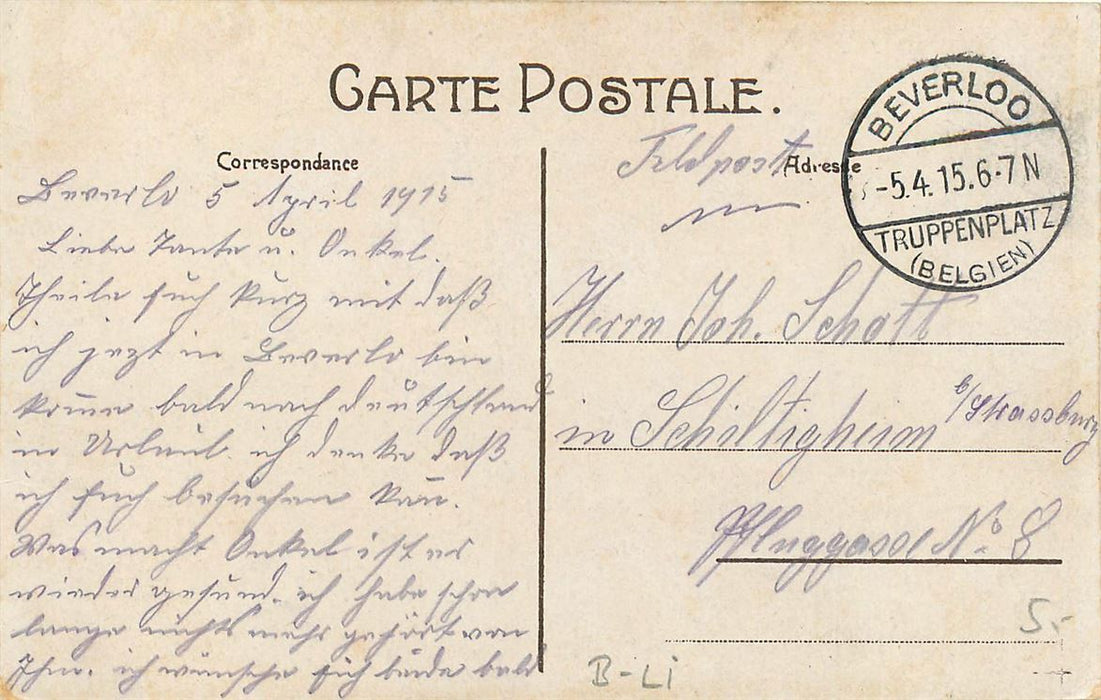 CARTE POSTALE.
Correspondance
Adresse
BEVERLOO
-5.4.15.6-7N
TRUPPENPLATZ
(BELGIEN)
Feldpost
Beverlo 5 April 1915
Liebe Tante u. Onkel.
Theile Euch kurz mit daß
ich jezt in Beverlo bin
kome bald nach Deutschland
in Urlaub. ich denke daß
ich Euch besuchen kan.
Was macht Onkel ist er
wieder gesund. ich habe schon
lange nichts mehr gehört von
Ihm. ich wünsche Euch beide bald
Herrn Joh. Schott
in Schiltigheim b/Strassburg
Pfluggasse No 8
5.-
B-Li